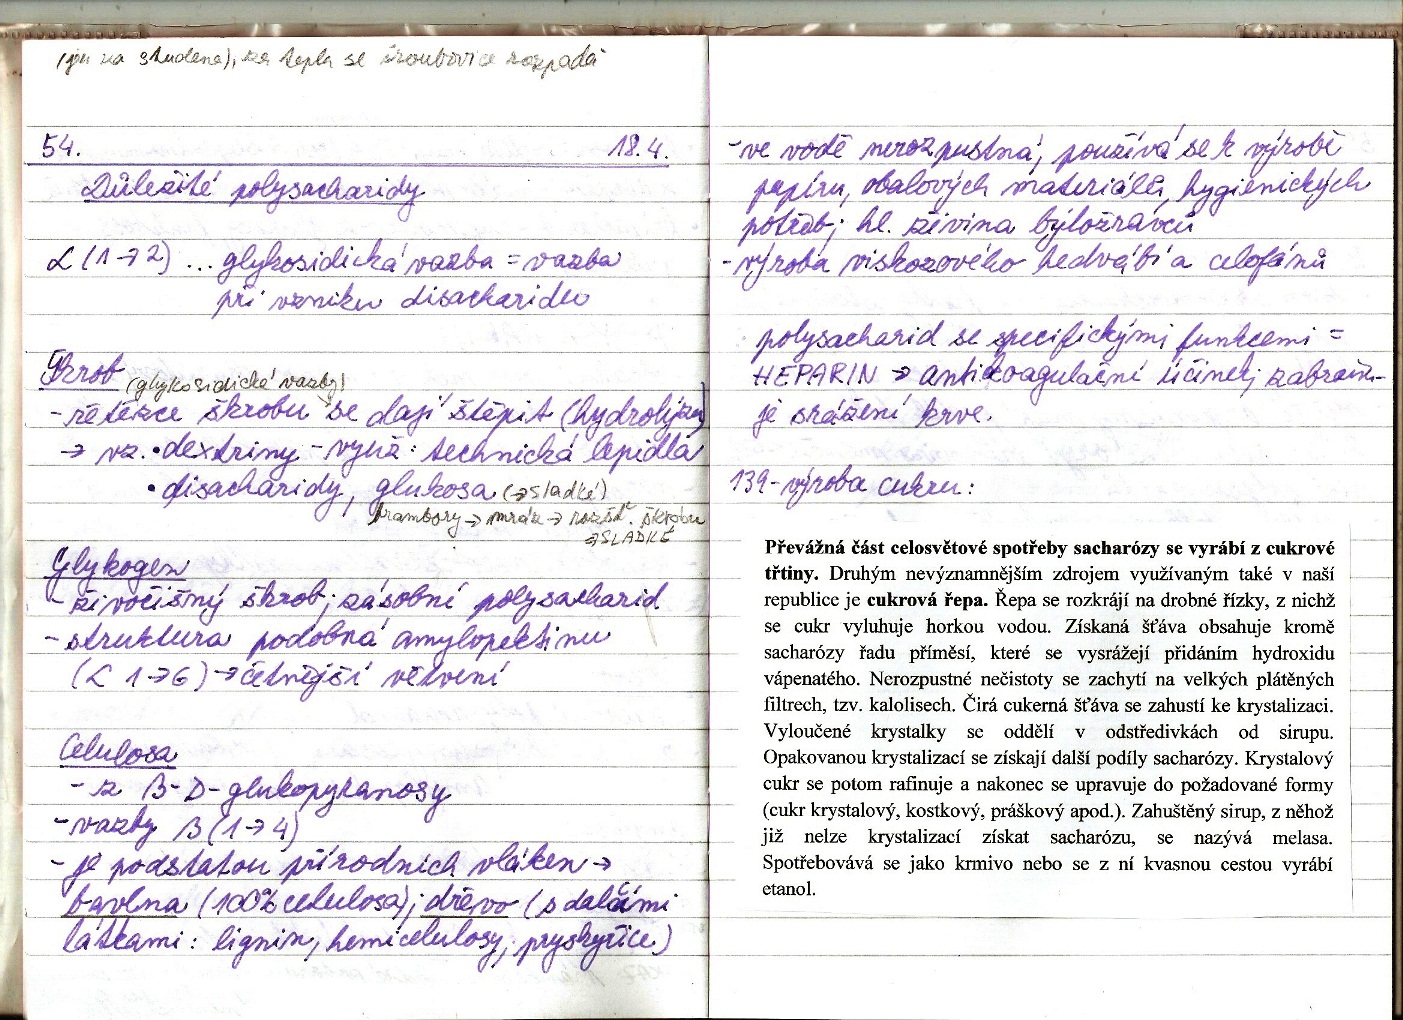 (jen na studena), za tepla se šroubovice rozpadá
54. 18.4.
Důležité polysacharidy
α (1→2) ... glykosidická vazba = vazba
při vzniku disacharidu
Škrob (glykosidické vazby)
- řetězce škrobu se dají štěpit (hydrolýza)
→ vz. • dextriny - využ: technická lepidla
• disacharidy, glukosa (→sladké)
brambory → mráz → rozšt. škrobu
→ SLADKÉ
Glykogen
- živočišný škrob; zásobní polysacharid
- struktura podobná amylopektinu
(α 1→6) → četnější větvení
Celulosa
- z β-D-glukopyranosy
- vazby β(1→4)
- je podstatou přírodních vláken →
bavlna (100% celulosa); dřevo (s dalšími
látkami: lignin, hemicelulosy, pryskyřice)
- ve vodě nerozpustná, používá se k výrobě
papíru, obalových materiálů, hygienických
potřeb; hl. živina býložravců
- výroba viskozového hedvábí a celofánů
polysacharid se specifickými funkcemi =
HEPARIN → antikoagulační účinek; zabraňu-
je srážení krve.
139 - výroba cukru:
Převážná část celosvětové spotřeby sacharózy se vyrábí z cukrové
třtiny. Druhým nevýznamnějším zdrojem využívaným také v naší
republice je cukrová řepa. Řepa se rozkrájí na drobné řízky, z nichž
se cukr vyluhuje horkou vodou. Získaná šťáva obsahuje kromě
sacharózy řadu příměsí, které se vysrážejí přidáním hydroxidu
vápenatého. Nerozpustné nečistoty se zachytí na velkých plátěných
filtrech, tzv. kalolisech. Čirá cukerná šťáva se zahustí ke krystalizaci.
Vyloučené krystalky se oddělí v odstředivkách od sirupu.
Opakovanou krystalizací se získají další podíly sacharózy. Krystalový
cukr se potom rafinuje a nakonec se upravuje do požadované formy
(cukr krystalový, kostkový, práškový apod.). Zahuštěný sirup, z něhož
již nelze krystalizací získat sacharózu, se nazývá melasa.
Spotřebovává se jako krmivo nebo se z ní kvasnou cestou vyrábí
etanol.